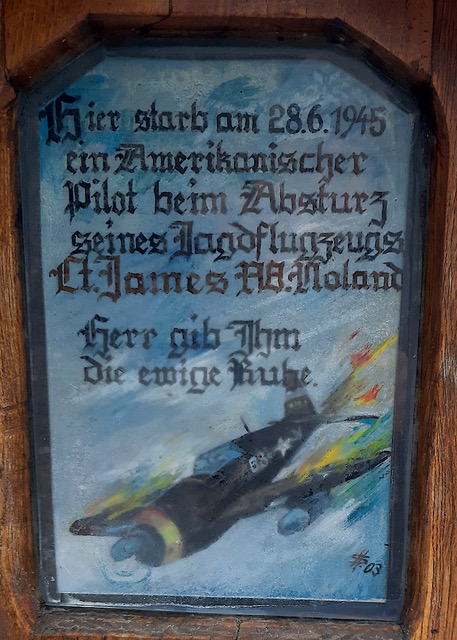 Hier starb am 28.6.1945
ein Amerikanischer
Pilot beim Absturz
seines Jagdflugzeugs
Lt. James W. Noland
Herr gib Ihm
die ewige Ruhe.
03